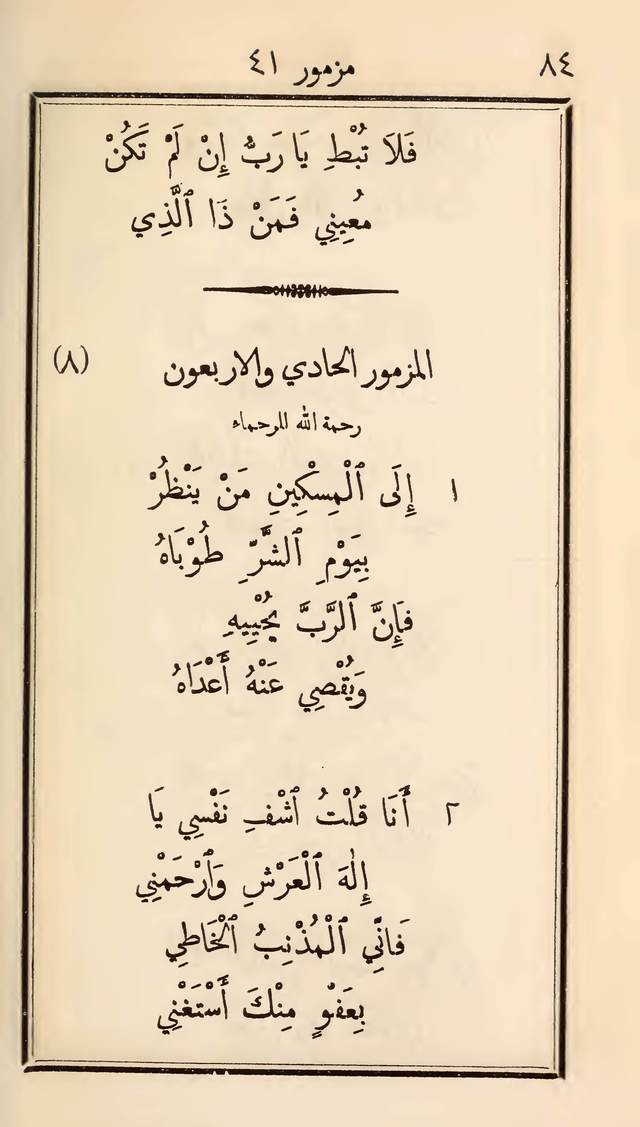 ٨٤ مزمور ٤١
فَلَا تُبْطِ يَا رَبُّ إِنْ لَمْ تَكُنْ
مُعِينِي فَمَنْ ذَا ٱلَّذِي
المزمور الحادي والاربعون (٨)
رحمة الله للرحماء
١ إِلَى ٱلْمِسْكِينِ مَنْ يَنْظُرْ
بِيَوْمِ ٱلشَّرِّ طُوْبَاهُ
فَإِنَّ ٱلرَّبَّ يُحْيِيهِ
وَيُقْصِي عَنْهُ أَعْدَاهُ
٢ أَنَا قُلْتُ ٱشْفِ نَفْسِي يَا
إِلٰهَ ٱلْعَرْشِ وَٱرْحَمْنِي
فَانِّي ٱلْمُذْنِبُ ٱلْخَاطِي
بِعَفْوٍ مِنْكَ أَسْتَغْنِي